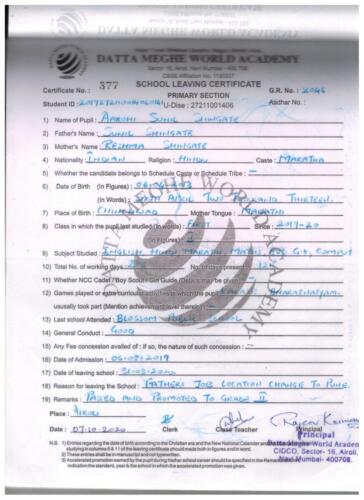 DATTA MEGHE WORLD ACADEMY
Sector 16, Airoli, Navi Mumbai - 400 708.
CBSE Affiliation No. 1130337
SCHOOL LEAVING CERTIFICATE
Certificate No.: 377 G.R. No.: 2046
PRIMARY SECTION
Student ID: U-Dise : 27211001406 Aadhar No.:
1) Name of Pupil: AAROHI SUNIL SHINGATE
2) Father's Name: SUNIL SHINGATE
3) Mother's Name: RESHMA SHINGATE
4) Nationality INDIAN Religion: HINDU Caste: MARATHA
5) Whether the candidate belongs to Schedule Caste or Schedule Tribe : —
6) Date of Birth (In Figures) :
(In Words): SIXTH APRIL TWO THOUSAND THIRTEEN
7) Place of Birth: Mother Tongue: MARATHI
8) Class in which the pupil last studied (In words): FIRST Since: 2019-20
(In Figures)
9) Subject Studied: ENGLISH HINDI MARATHI MATHS G.K, COMPUT
10) Total No. of working days No. of days present
11) Whether NCC Cadet / Boy Scout / Girl Guide (Details may be given)
12) Games played or extra curricular activities in which the pupil BHARATNATYAM
usually took part (Mention achievement level therein)
13) Last school Attended: BLOSSOM PUBLIC SCHOOL
14) General Conduct: GOOD
15) Any Fee concession availed of : if so, the nature of such concession : —
16) Date of Admission:
17) Date of leaving school:
18) Reason for leaving the School: FATHERS JOB LOCATION CHANGE TO PUNE.
19) Remarks: PASSED AND PROMOTED TO GRADE II
Place: AIROLI
Date: 07-10-2020 Clerk Class Teacher Principal
Principal
Datta Meghe World Academ
CIDCO, Sector- 16, Airoli,
Navi Mumbai- 400708.
N.B. 1) Entries regarding the date of birth according to the Christian era and the New National Calender and
studying in columns 6 & 11 of the leaving certificate should be made both in figures and in word.
2) These entries shall be in manuscript and not typewritten.
3) Accelerated promotion earned by the pupil during his/her school career should be specified in the Remarks
indication the standard, year & the school in which the accelerated promotion was given.